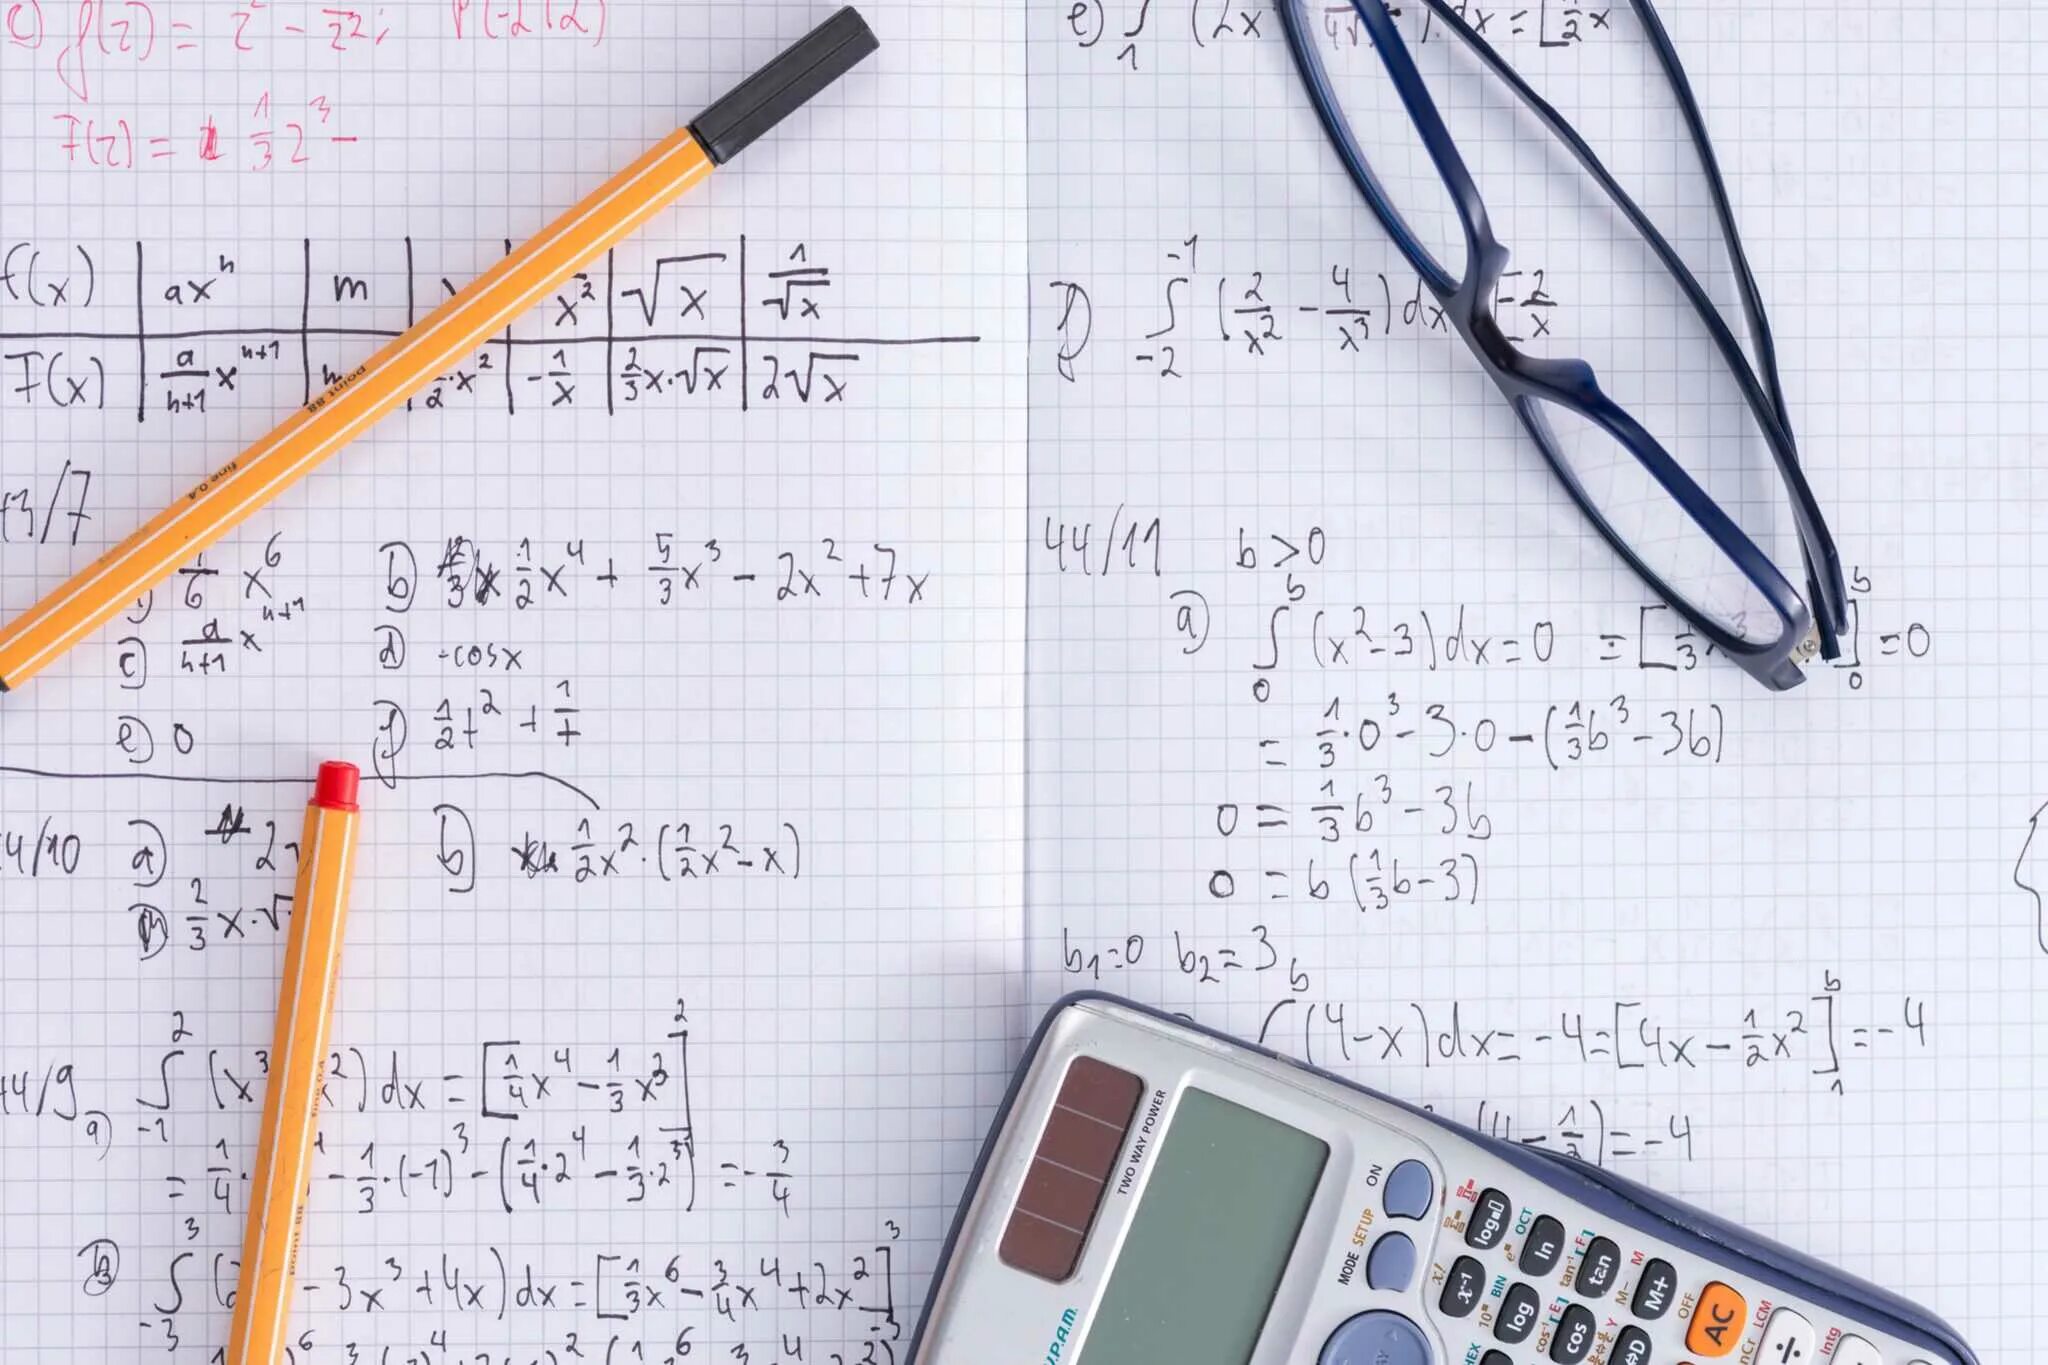 e) f(z) = z² - 2/z²; P(-2|2)
F(z) = 1/3 z³ -
f(x) | ax^n | m | x² | √x | 1/√x
F(x) | a/(n+1) x^(n+1) | 1/2·x² | -1/x | 2/3 x·√x | 2√x
point 88
fine 0,4
43/7
1/6 x⁶ b) 1/2 x⁴ + 5/3 x³ - 2x² + 7x
c) a/(n+1) x^(n+1) d) -cosx
e) 0 f) 1/2 t² + 1/t
44/10 a) 2√ b) 1/2 x²·(1/2 x² - x)
2/3 x·√
44/9 a) ∫_-1^2 (x³ x²) dx = [1/4 x⁴ - 1/3 x³]^2
= 1/4· - 1/3·(-1)³ - (1/4·2⁴ - 1/3·2³) = -3/4
b) ∫_-3^3 (2 - 3x³ + 4x) dx = [1/3 x⁶ - 3/4 x⁴ + 2x²]_-3^3
point 88
e) ∫_1 (2x dx = [1/2 x
f) ∫_-2^-1 (2/x² - 4/x³) dx [-2/x
44/11 b > 0
a) ∫_0^b (x² - 3) dx = 0 = [1/3 x³ ]_0^b = 0
= 1/3·0³ - 3·0 - (1/3 b³ - 3b)
0 = 1/3 b³ - 3b
0 = b (1/3 b - 3)
b₁=0 b₂=3
∫^b (4-x) dx = -4 = [4x - 1/2 x²]_1^b = -4
(4 - 1/2) = -4
TWO WAY POWER
V.P.A.M.
ON
MODE SETUP
log ln tan M+
x! e OCT tan⁻¹ M- M
x⁻¹ log cos AC ÷
10 BIN cos⁻¹ OFF LCM Intg
HEX